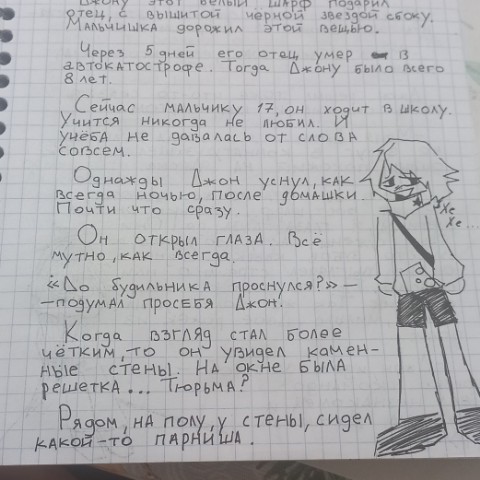 Джону этот белый шарф подарил
отец, с вышитой черной звездой сбоку.
Мальчишка дорожил этой вещью.
Через 5 дней его отец умер в
автокатострофе. Тогда Джону было всего
8 лет.
Сейчас мальчику 17, он ходит в школу.
Учится никогда не любил. И
учёба не давалась от слова
совсем.
Однажды Джон уснул, как
всегда ночью, после домашки.
Почти что сразу.
Он открыл глаза. Всё
мутно, как всегда.
«До будильника проснулся?» —
— подумал просебя Джон.
Когда взгляд стал более
чётким, то он увидел камен-
ные стены. На окне была
решетка... Тюрьма?
Рядом, на полу, у стены, сидел
какой-то парниша.
Хе
Хе...